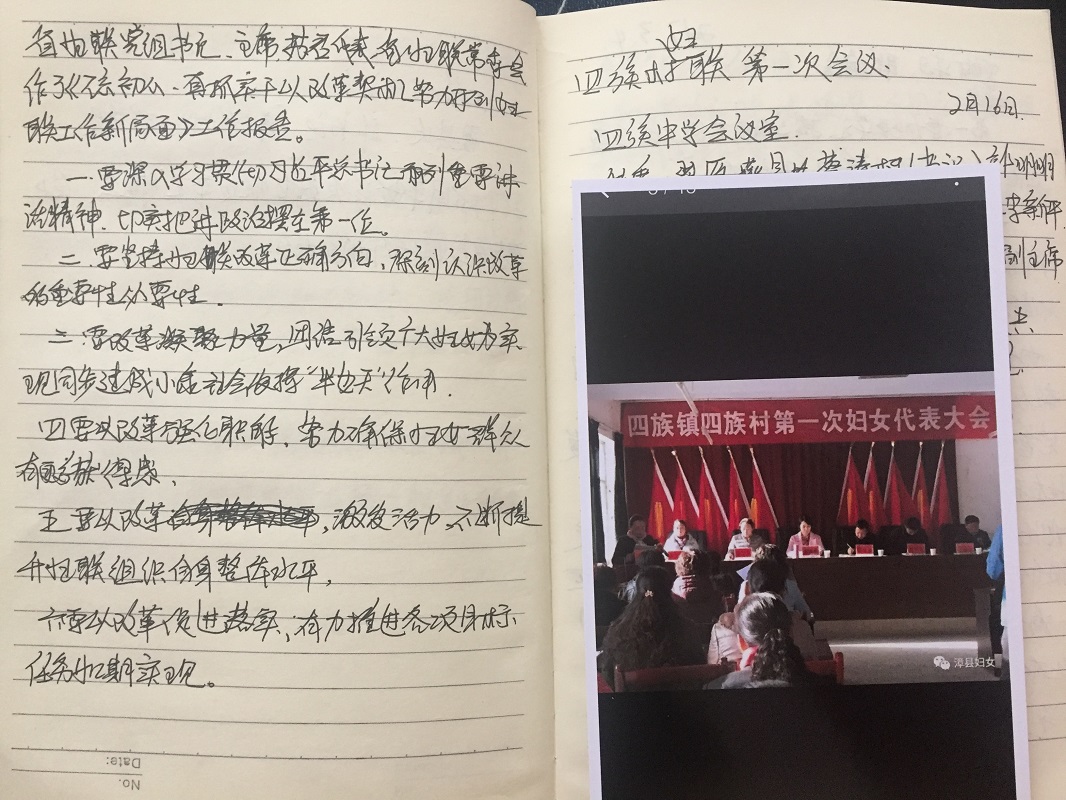 省妇联党组书记、主席 代表省妇联常委会
作了《不忘初心·真抓实干以改革契机努力开创妇
联工作新局面》工作报告。
一.要深入学习贯彻习近平总书记系列重要讲
话精神.切实把讲政治摆在第一位。
二.要坚持妇联改革正确方向,深刻认识改革
的重要性必要性.
三.要改革凝聚力量,团结引领广大妇女为实
现同步建成小康社会发挥“半边天”作用.
四要以改革强化职能,努力确保妇女群众
有 获得感、
五要以改革,激发活力,不断提
升妇联组织自身整体水平,
六要以改革促进落实,有力推进各项目标
任务如期实现。
No.
Date:
四族村妇联第一次会议.
2月16日.
四族中学会议室.
副主席
四族镇四族村第一次妇女代表大会
漳县妇女